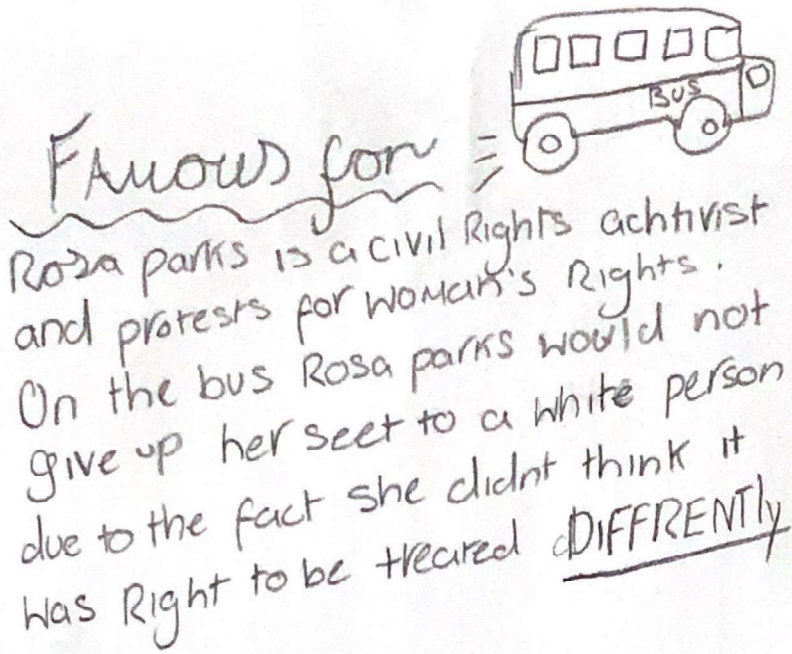 BUS
Famous for
Rosa parks is a civil Rights achtivist
and protests for woman's Rights.
On the bus Rosa parks would not
give up her seet to a white person
due to the fact she didnt think it
was Right to be treared DIFFRENTly